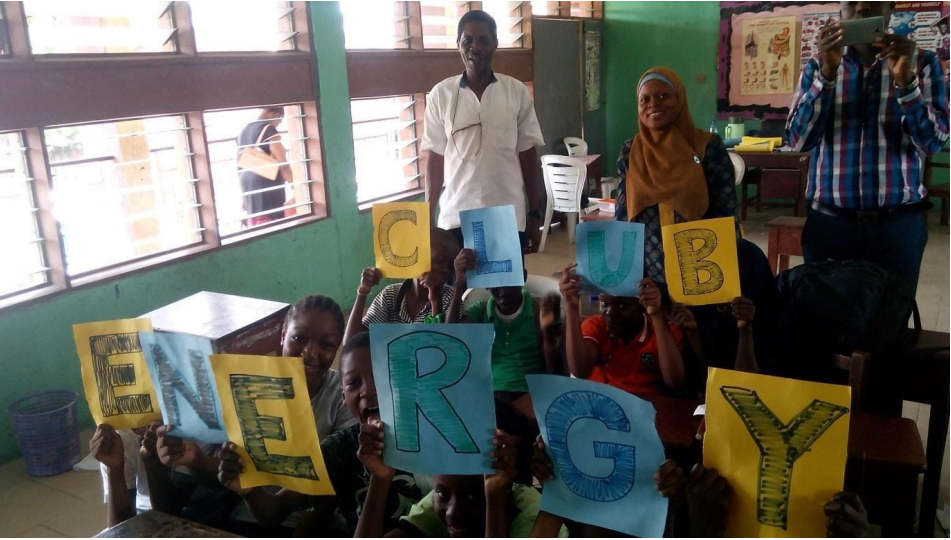 CLUB
ENERGY